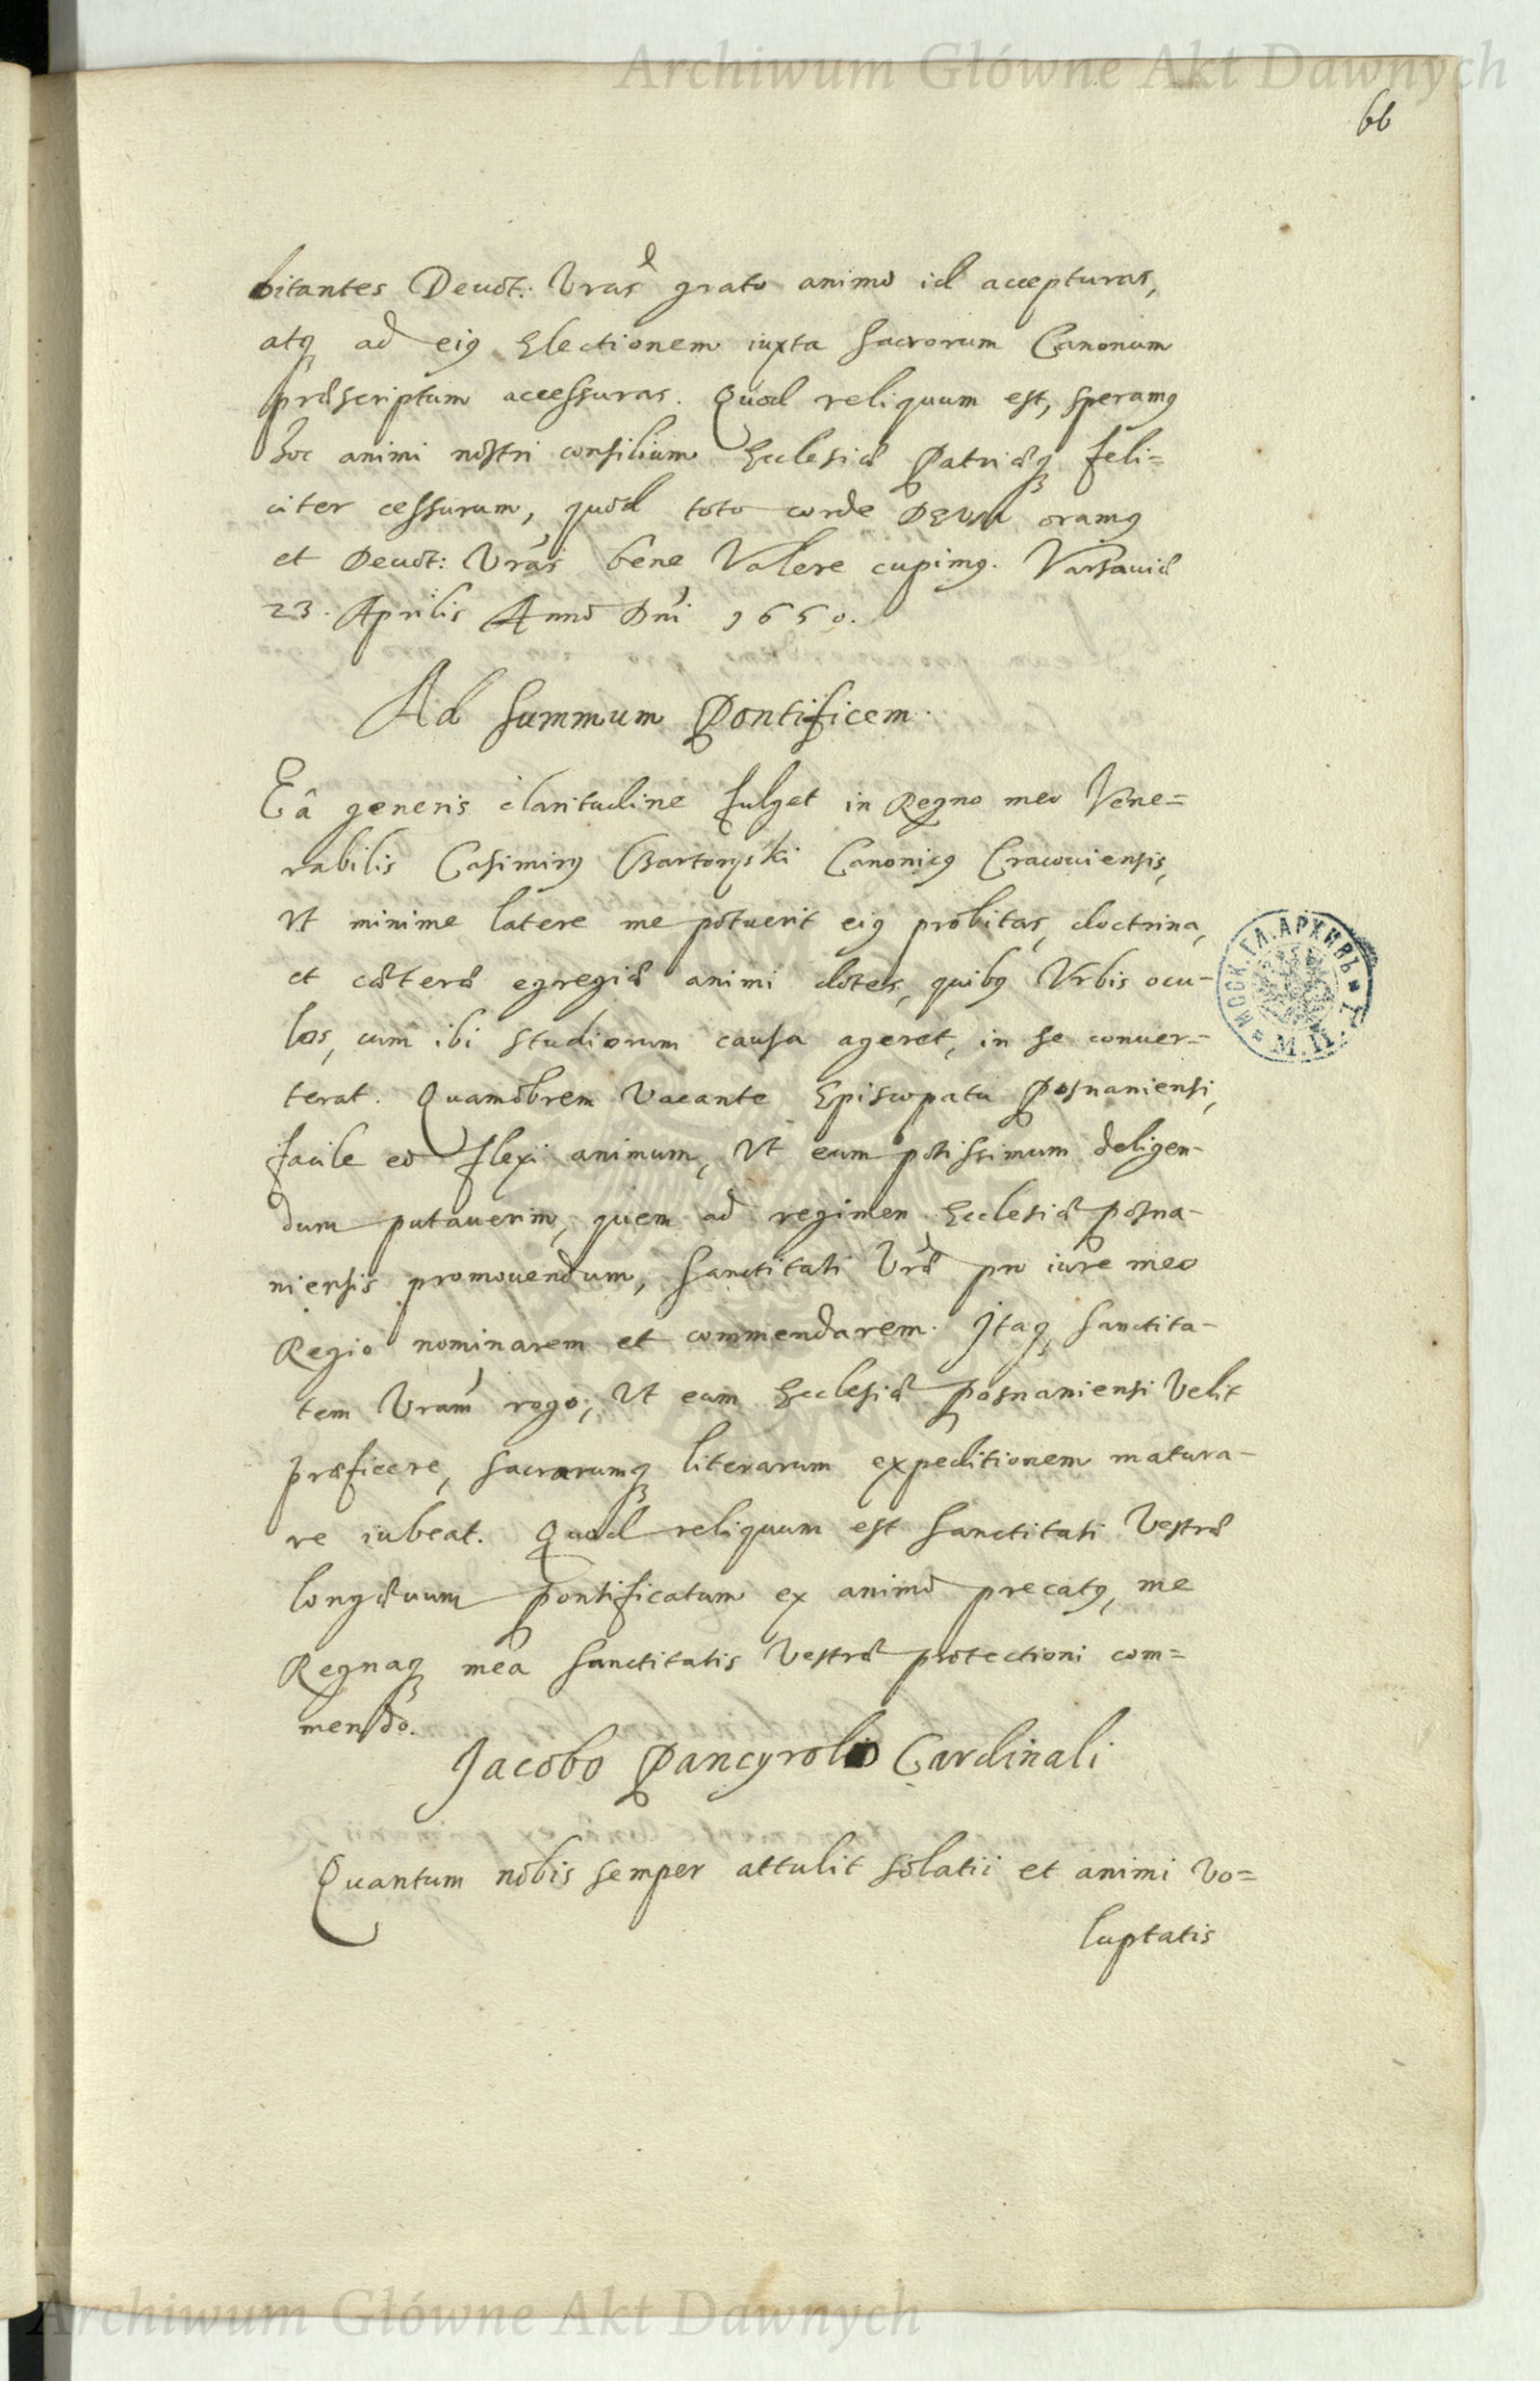 Archiwum Główne Akt Dawnych
66
bitantes Devot: Vras grato animo id accepturas,
atq ad eiꝰ Electionem iuxta Sacrorum Canonum
præscriptum accessuras. Quod reliquum est, speramꝰ
hoc animi nostri consilium Ecclesiæ Patriæq feli=
citer cessurum, quod toto corde DEUM oramꝰ
et Devot: Vras bene Valere cupimꝰ. Varsaviæ
23. Aprilis Anno Dni 1650.
Ad Summum Pontificem.
Eâ generis claritudine fulget in Regno meo Vene=
rabilis Casimirꝰ Czartoryski Canonicꝰ Cracoviensis,
Vt minime latere me potuerit eiꝰ probitas, doctrina,
et cæteræ egregiæ animi dotes, quibꝰ Vrbis ocu-
los, cum ibi studiorum causa ageret, in se conver=
terat. Quamobrem Vacante Episcopatu Posnaniensi,
facile eo flexi animum, Vt eum potissimum deligen-
dum putaverim, quem ad regimen Ecclesiæ Posna-
niensis promovendum, Sanctitati Vræ pro iure meo
Regio nominarem et commendarem. Itaq Sanctita-
tem Vram rogo, Vt eum Ecclesiæ Posnaniensi Velit
præficere, sacrarumq literarum expeditionem matura-
re iubeat. Quod reliquum est Sanctitati Vestræ
longævum pontificatum ex animo precatꝰ, me
Regnaq mea Sanctitatis Vestræ protectioni com=
mendo.
Jacobo Pancyrolo Cardinali
Quantum nobis semper attulit solatii et animi vo=
luptatis
МОСК.ГЛ.АРХИВЪ
М.И.Д.
Archiwum Główne Akt Dawnych